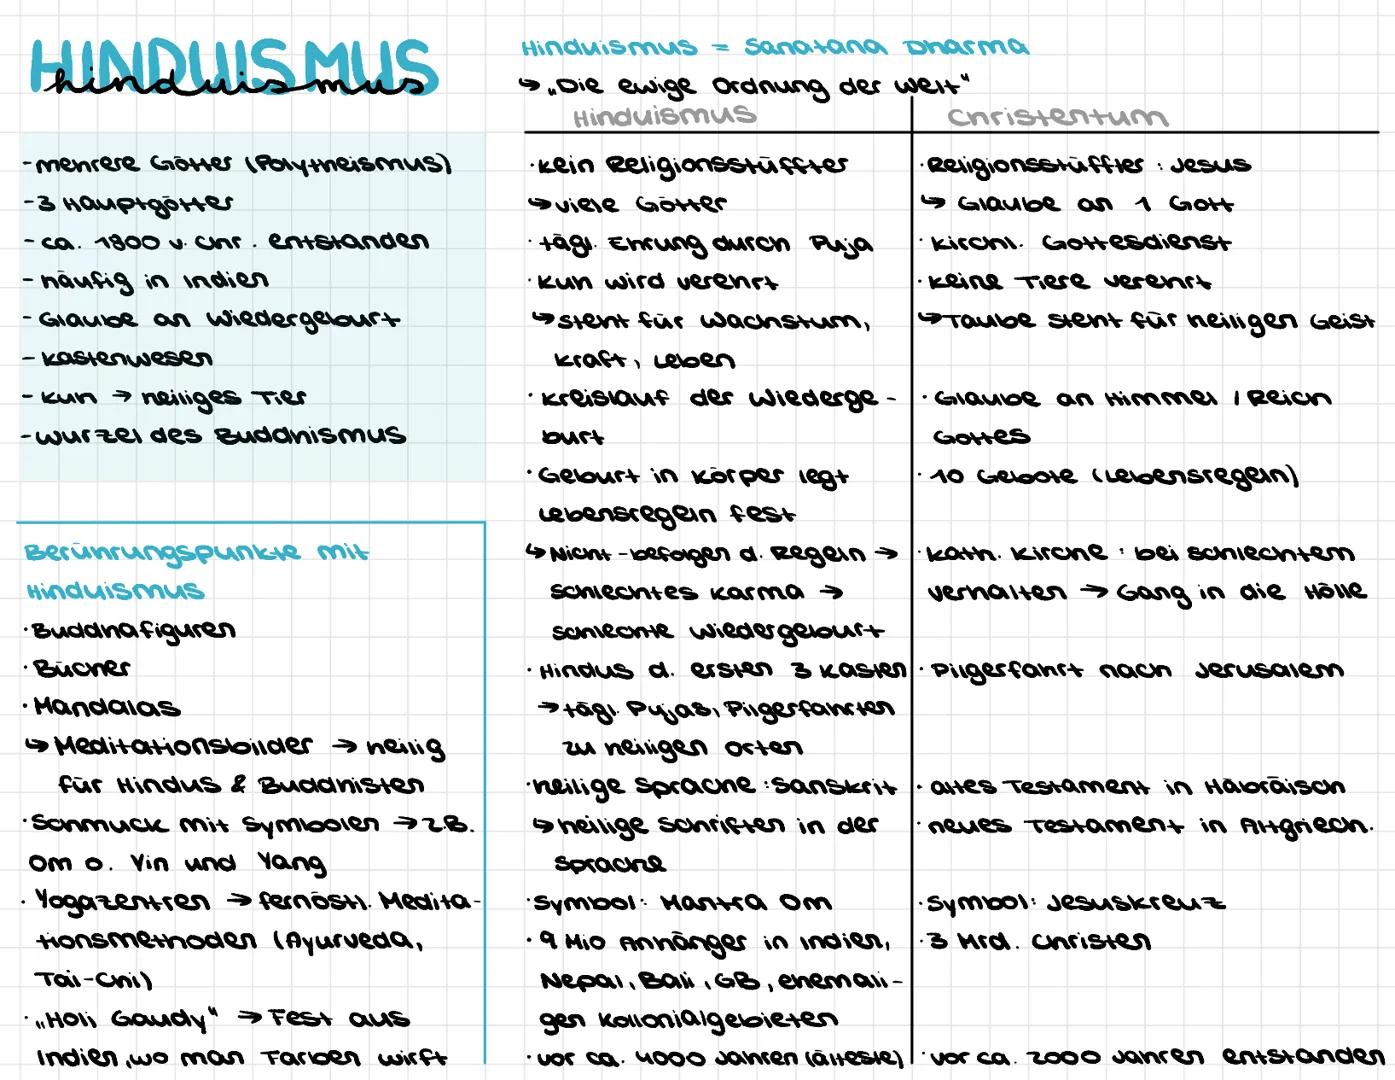 HINDUISMUS
hinduismus
- mehrere Götter (Polytheismus)
- 3 Hauptgötter
- ca. 1800 v. Chr. entstanden
- häufig in Indien
- Glaube an Wiedergeburt
- Kastenwesen
- Kuh → heiliges Tier
- Wurzel des Buddhismus
Berührungspunkte mit
Hinduismus
· Buddhafiguren
· Bücher
· Mandalas
↳ Meditationsbilder → heilig
für Hindus & Buddhisten
· Schmuck mit Symbolen → z.B.
Om o. Yin und Yang
· Yogazentren → fernöstl. Medita-
tionsmethoden (Ayurveda,
Tai-Chi)
· „Holi Gaudy“ → Fest aus
Indien, wo man Farben wirft
Hinduismus = Sanatana Dharma
↳ „Die ewige Ordnung der Welt“
Hinduismus
· kein Religionsstüffter
↳ viele Götter
· tägl. Ehrung durch Puja
· Kuh wird verehrt
↳ steht für Wachstum,
Kraft, Leben
· Kreislauf der Wiederge-
burt
· Geburt in Körper legt
Lebensregeln fest
↳ Nicht-befolgen d. Regeln →
schlechtes Karma →
schlechte Wiedergeburt
· Hindus d. ersten 3 Kasten
→ tägl. Pujas, Pilgerfahrten
zu heiligen Orten
· heilige Sprache: Sanskrit
↳ heilige Schriften in der
Sprache
· Symbol: Mantra Om
· 9 Mio Anhänger in Indien,
Nepal, Bali, GB, ehemali-
gen Kollonialgebieten
· vor ca. 4000 Jahren (älteste)
Christentum
· Religionsstüffter: Jesus
↳ Glaube an 1 Gott
· kirchl. Gottesdienst
· keine Tiere verehrt
↳ Taube steht für heiligen Geist
· Glaube an Himmel / Reich
Gottes
· 10 Gebote (Lebensregeln)
· kath. Kirche: bei schlechtem
Verhalten → Gang in die Hölle
· Pilgerfahrt nach Jerusalem
· altes Testament in Häbräisch
· neues Testament in Altgriech.
· Symbol: Jesuskreuz
· 3 Mrd. Christen
· vor ca. 2000 Jahren entstanden